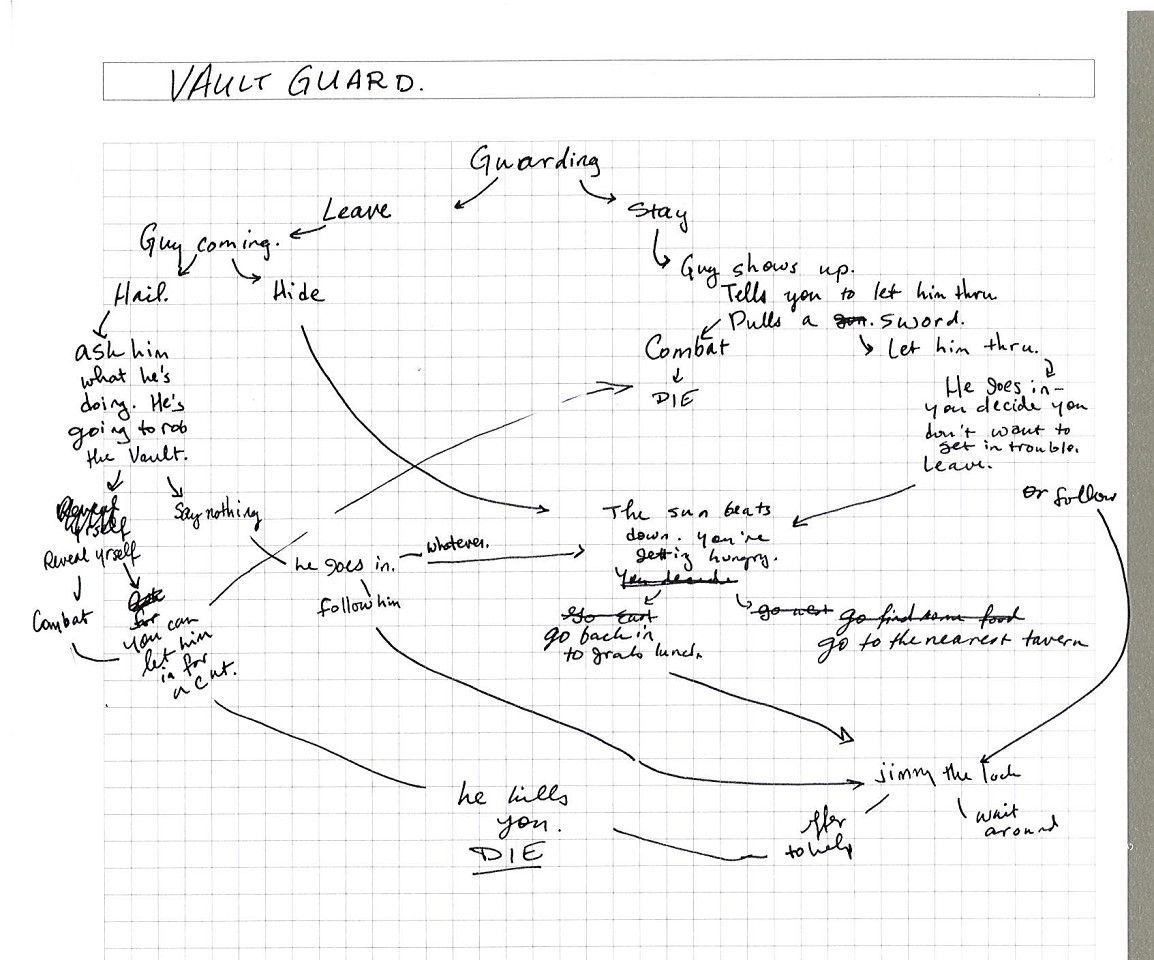 VAULT GUARD.
Guarding
Leave
Stay
Guy coming.
Guy shows up.
Tells you to let him thru
Pulls a gun. sword.
Hail.
Hide
Combat
DIE
Let him thru.
He goes in—
you decide you
don't want to
get in trouble.
Leave.
or follow
ask him
what he's
doing. He's
going to rob
the Vault.
Reveal
yrself
Reveal yrself
Say nothing
Combat
for
you can
let him
in for
a cut.
he goes in.
whatever.
follow him
The sun beats
down. You're
getting hungry.
You decide
Go East
go back in
to grab lunch.
go west
go find some food
go to the nearest tavern
jimmy the lock
offer
to help
wait
around
he kills
you.
DIE